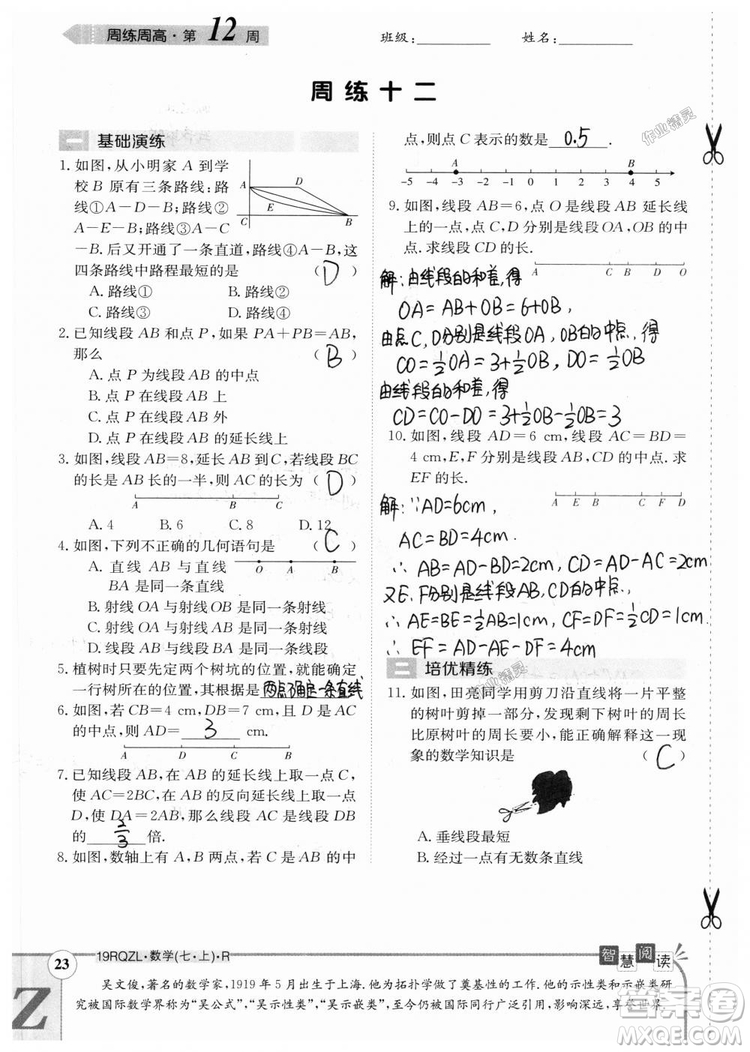 周练周高·第12周
班级:________ 姓名:________
周练十二
一 基础演练
1. 如图,从小明家 A 到学
校 B 原有三条路线:路
线①A-D-B;路线②
A-B;路线③A-E-
B.后又开通了一条直道,路线④A-B,这
四条路线中路程最短的是 ( D )
A. 路线① B. 路线②
C. 路线③ D. 路线④
A
D
E
C
B
2. 已知线段 AB 和点 P,如果 PA+PB=AB,
那么 ( B )
A. 点 P 为线段 AB 的中点
B. 点 P 在线段 AB 上
C. 点 P 在线段 AB 外
D. 点 P 在线段 AB 的延长线上
3. 如图,线段 AB=8,延长 AB 到 C,若线段 BC
的长是 AB 长的一半,则 AC 的长为 ( D )
A B C
A. 4 B. 6 C. 8 D. 12
4. 如图,下列不正确的几何语句是 ( C )
A. 直线 AB 与直线
BA 是同一条直线
O A B
B. 射线 OA 与射线 OB 是同一条射线
C. 射线 OA 与射线 AB 是同一条射线
D. 线段 AB 与线段 BA 是同一条线段
5. 植树时只要先定两个树坑的位置,就能确定
一行树所在的位置,这是因为 两点确定一条直线
6. 如图,若 CB=4 cm,DB=7 cm,且 D 是 AC
的中点,则 DC= 3
A D C B
7. 已知线段 AB,在 AB 的延长线上取一点 C,
使 AC=2BC,在 AB 的反向延长线上取一点
D,使 DA=2AB,那么线段 AC 是线段 DB
的 2/3 倍.
8. 如图,数轴上有 A,B 两点,若 C 是 AB 的中
点,则点 C 表示的数是 0.5
A B
-5 -4 -3 -2 -1 0 1 2 3 4 5
9. 如图,线段 AB=6,点 O 是线段 AB 延长线
上的一点,点 C,D 分别是线段 OA,OB 的中
点.求线段 CD 的长.
A C B D O
解:由线段的和差,得
OA=AB+OB=6+OB,
由点C,D分别是线段OA,OB的中点,得
CO=½OA=3+½OB,DO=½OB,
由线段的和差,得
CD=CO-DO=3+½OB-½OB=3
10. 如图,线段 AD=6 cm,线段 AC=BD=
4 cm,E,F 分别是线段 AB,CD 的中点.求
EF 的长.
A E B C F D
解:∵AD=6cm,
AC=BD=4cm.
∴AB=AD-BD=2cm,CD=AD-AC=2cm
又E、F分别是线段AB,CD的中点
∴AE=BE=½AB=1cm,CF=DF=½CD=1cm
∴EF=AD-AE-DF=4cm
二 培优精练
11. 如图,田亮同学用剪刀沿直线将一片平整
的树叶剪掉一部分,发现剩下树叶的周长
比原树叶的周长要小,能正确解释这一现
象的数学知识是 ( C )
A. 垂线段最短
B. 经过一点有无数条直线
23
19RQZL·数学(七·上)·R
智慧阅读
吴文俊,著名的数学家,1919 年 5 月出生于上海.他为拓扑学做了奠基性的工作.他的示性类和示嵌类研
究被国际数学界称为“吴公式”,“吴示性类”,“吴示嵌类”,至今仍被国际同行广泛引用,影响深远,享誉世界.
Z
作业精灵
作业精灵
答案圈